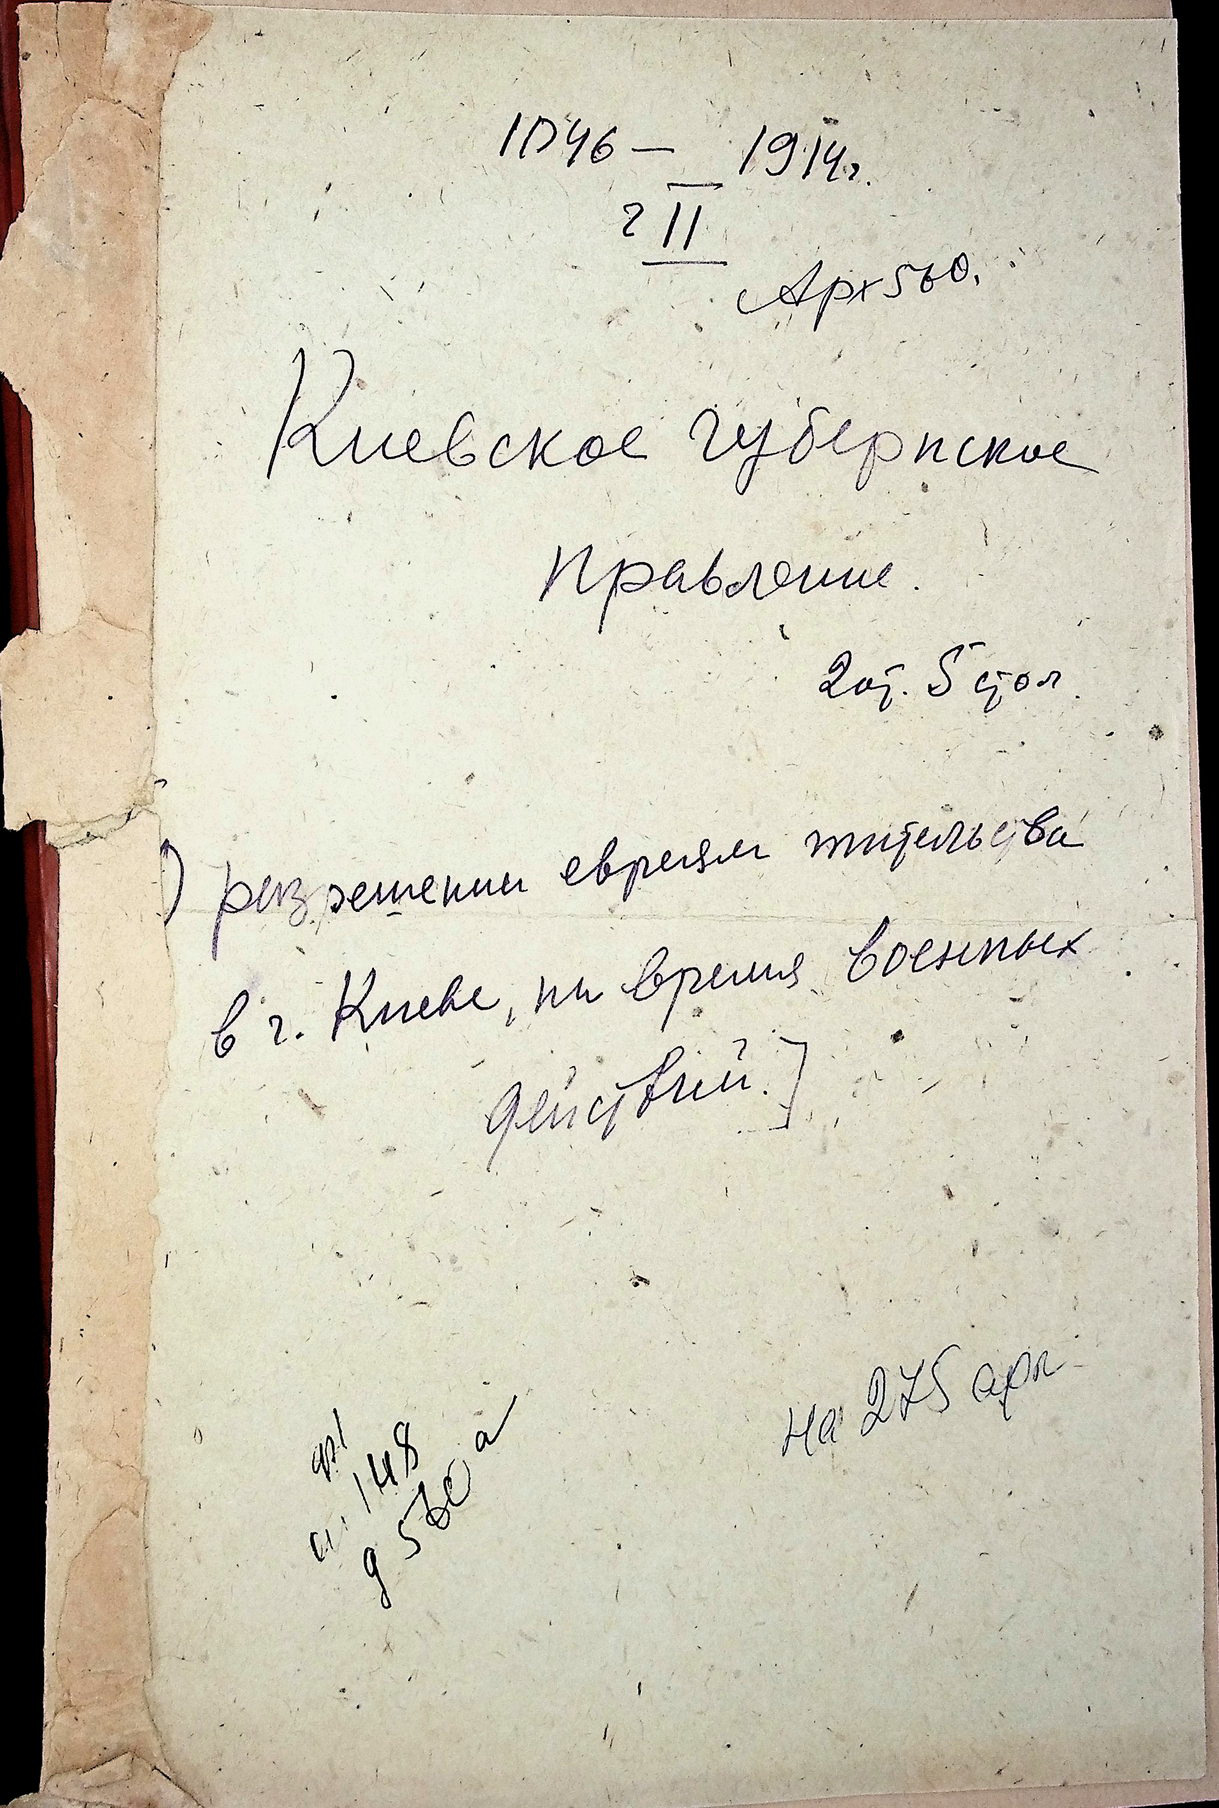 1046 — 1914г.
ч II
Арх 560.
Киевское губернское
правление.
2 от. 5 стол.
О разрешении евреям жительства
в г. Киеве, на время военных
действий.]
На 275 арк
148
д 560 а